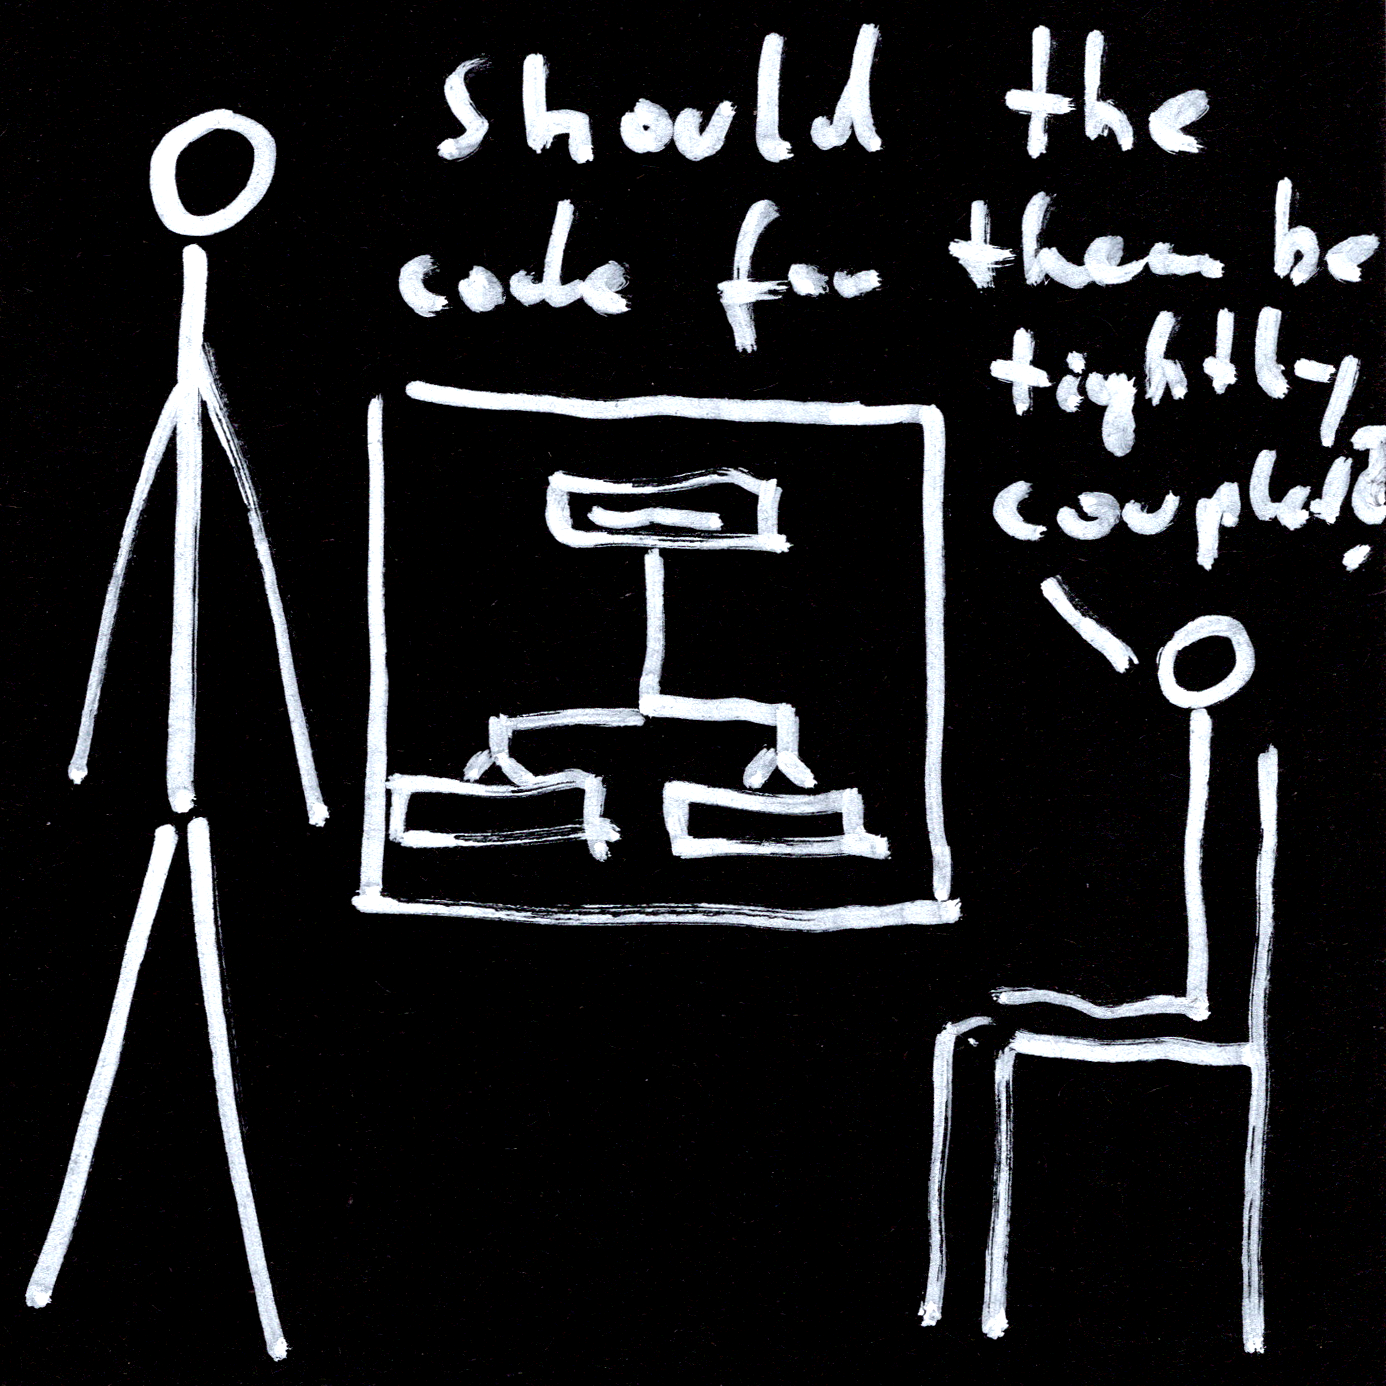 Should the
code for them be
tightly
coupled?